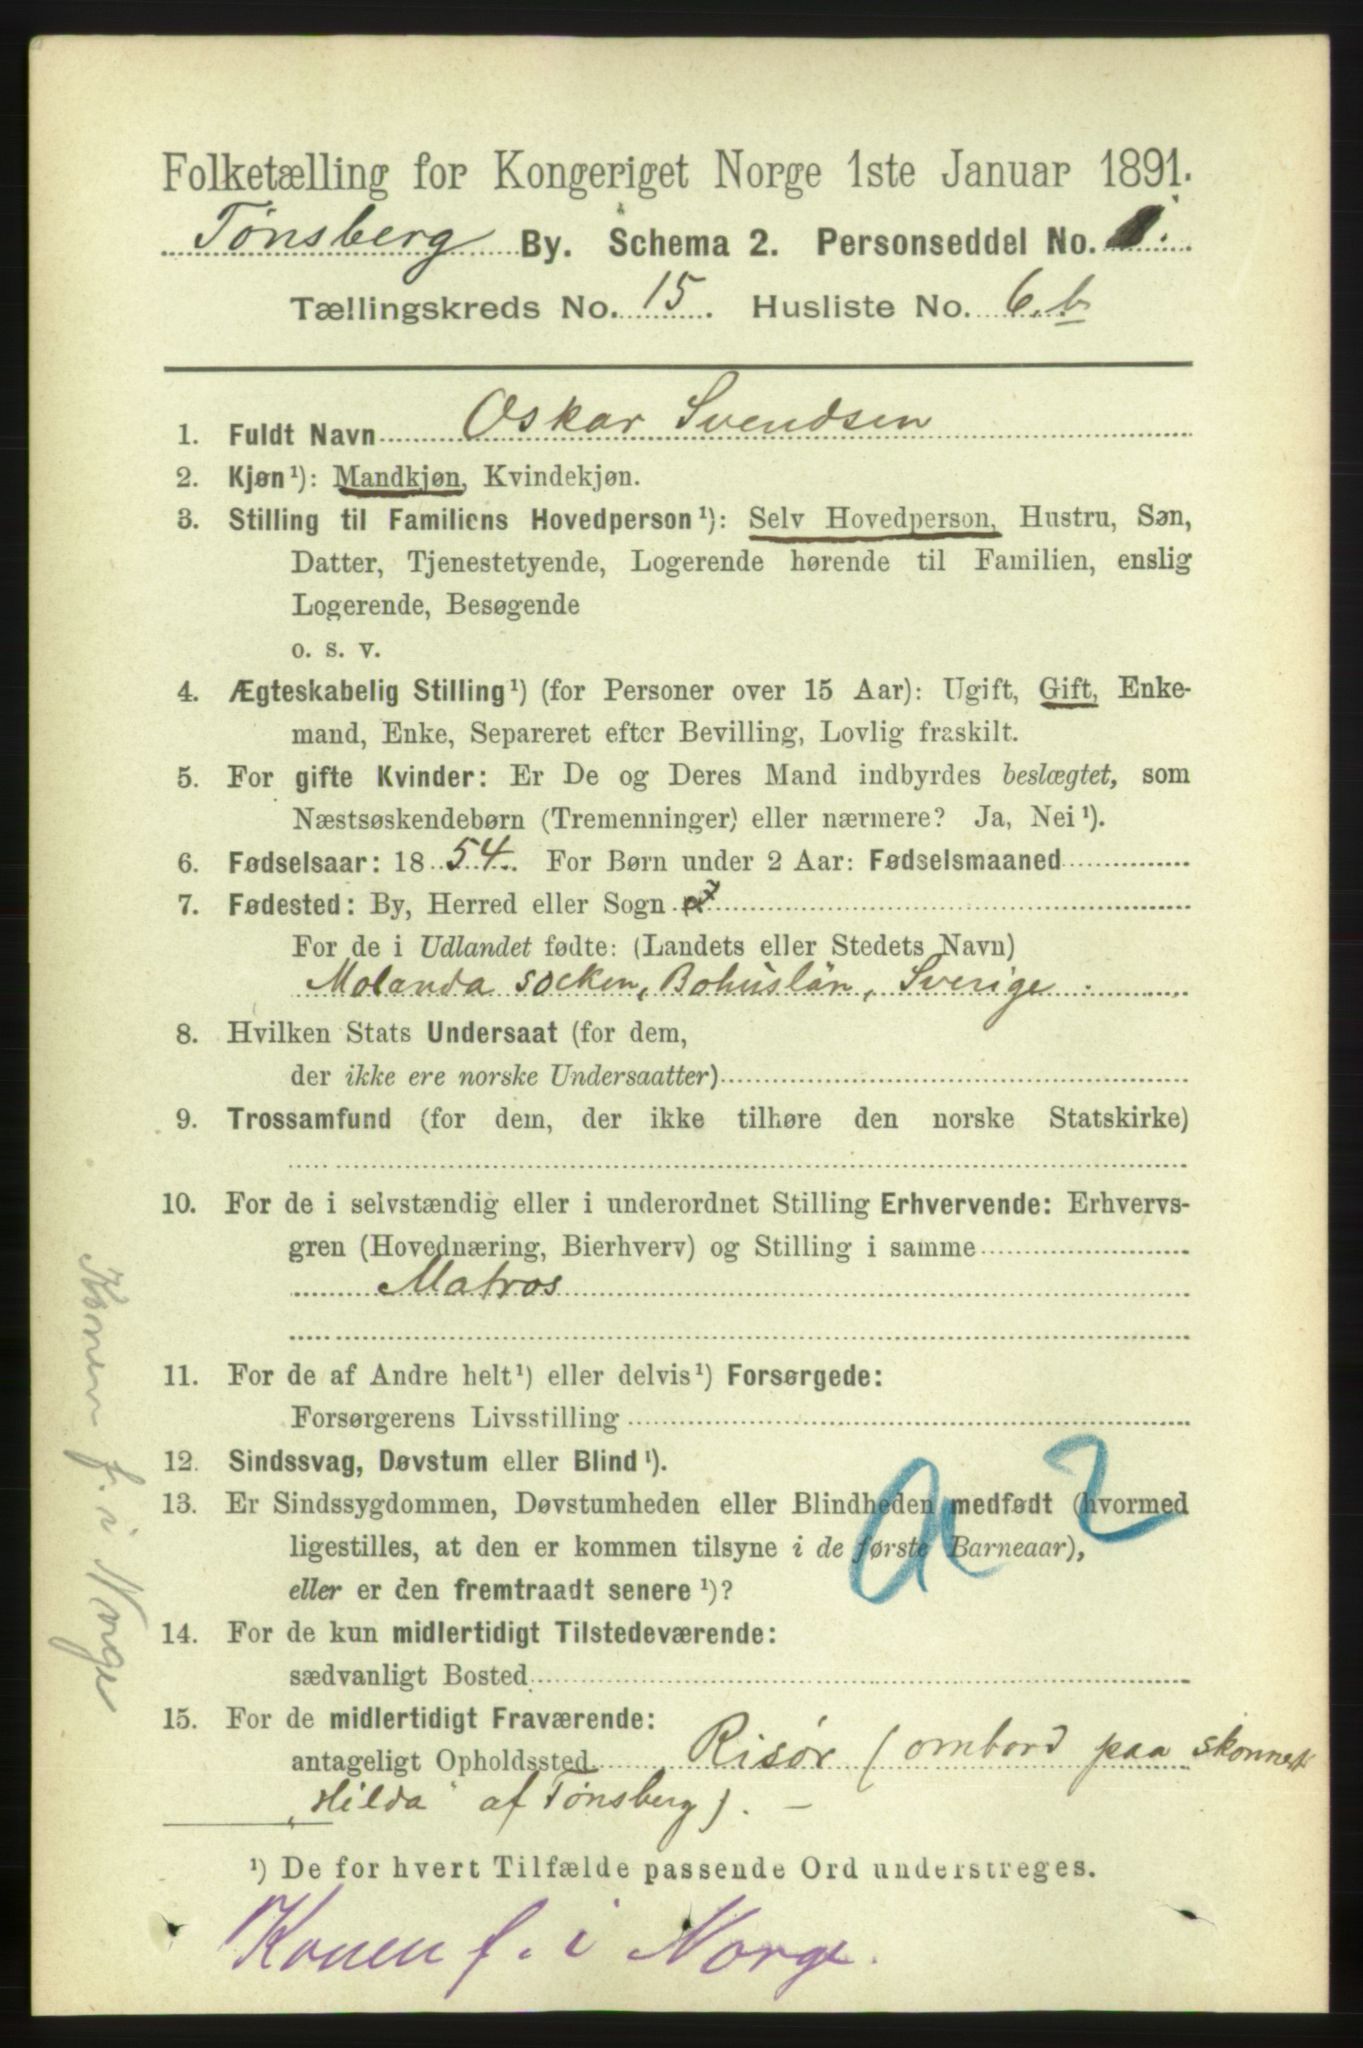 Folketælling for Kongeriget Norge 1ste Januar 1891.
Tønsberg By. Schema 2. Personseddel No. 1.
Tællingskreds No. 15. Husliste No. 6.b
1. Fuldt Navn Oskar Svendsen
2. Kjøn¹): Mandkjøn, Kvindekjøn.
3. Stilling til Familiens Hovedperson¹): Selv Hovedperson, Hustru, Søn,
Datter, Tjenestetyende, Logerende hørende til Familien, enslig
Logerende, Besøgende
o. s. v.
4. Ægteskabelig Stilling¹) (for Personer over 15 Aar): Ugift, Gift, Enke-
mand, Enke, Separeret efter Bevilling, Lovlig fraskilt.
5. For gifte Kvinder: Er De og Deres Mand indbyrdes beslægtet, som
Næstsøskendebørn (Tremenninger) eller nærmere? Ja, Nei¹).
6. Fødselsaar: 1854. For Børn under 2 Aar: Fødselsmaaned
7. Fødested: By, Herred eller Sogn
For de i Udlandet fødte: (Landets eller Stedets Navn)
Molanda socken, Bohuslän, Sverige
8. Hvilken Stats Undersaat (for dem,
der ikke ere norske Undersaatter)
9. Trossamfund (for dem, der ikke tilhøre den norske Statskirke)
10. For de i selvstændig eller i underordnet Stilling Erhvervende: Erhvervs-
gren (Hovednæring, Bierhverv) og Stilling i samme
Matros
11. For de af Andre helt¹) eller delvis¹) Forsørgede:
Forsørgerens Livsstilling
12. Sindssvag, Døvstum eller Blind¹).
13. Er Sindssygdommen, Døvstumheden eller Blindheden medfødt (hvormed
ligestilles, at den er kommen tilsyne i de første Barneaar),
eller er den fremtraadt senere¹)?
a 2
14. For de kun midlertidigt Tilstedeværende:
sædvanligt Bosted
15. For de midlertidigt Fraværende:
antageligt Opholdssted Risør (ombord paa skonnert
"Hilda" af Tønsberg). —
¹) De for hvert Tilfælde passende Ord understreges.
Konen f. i Norge.
Konen f. i Norge